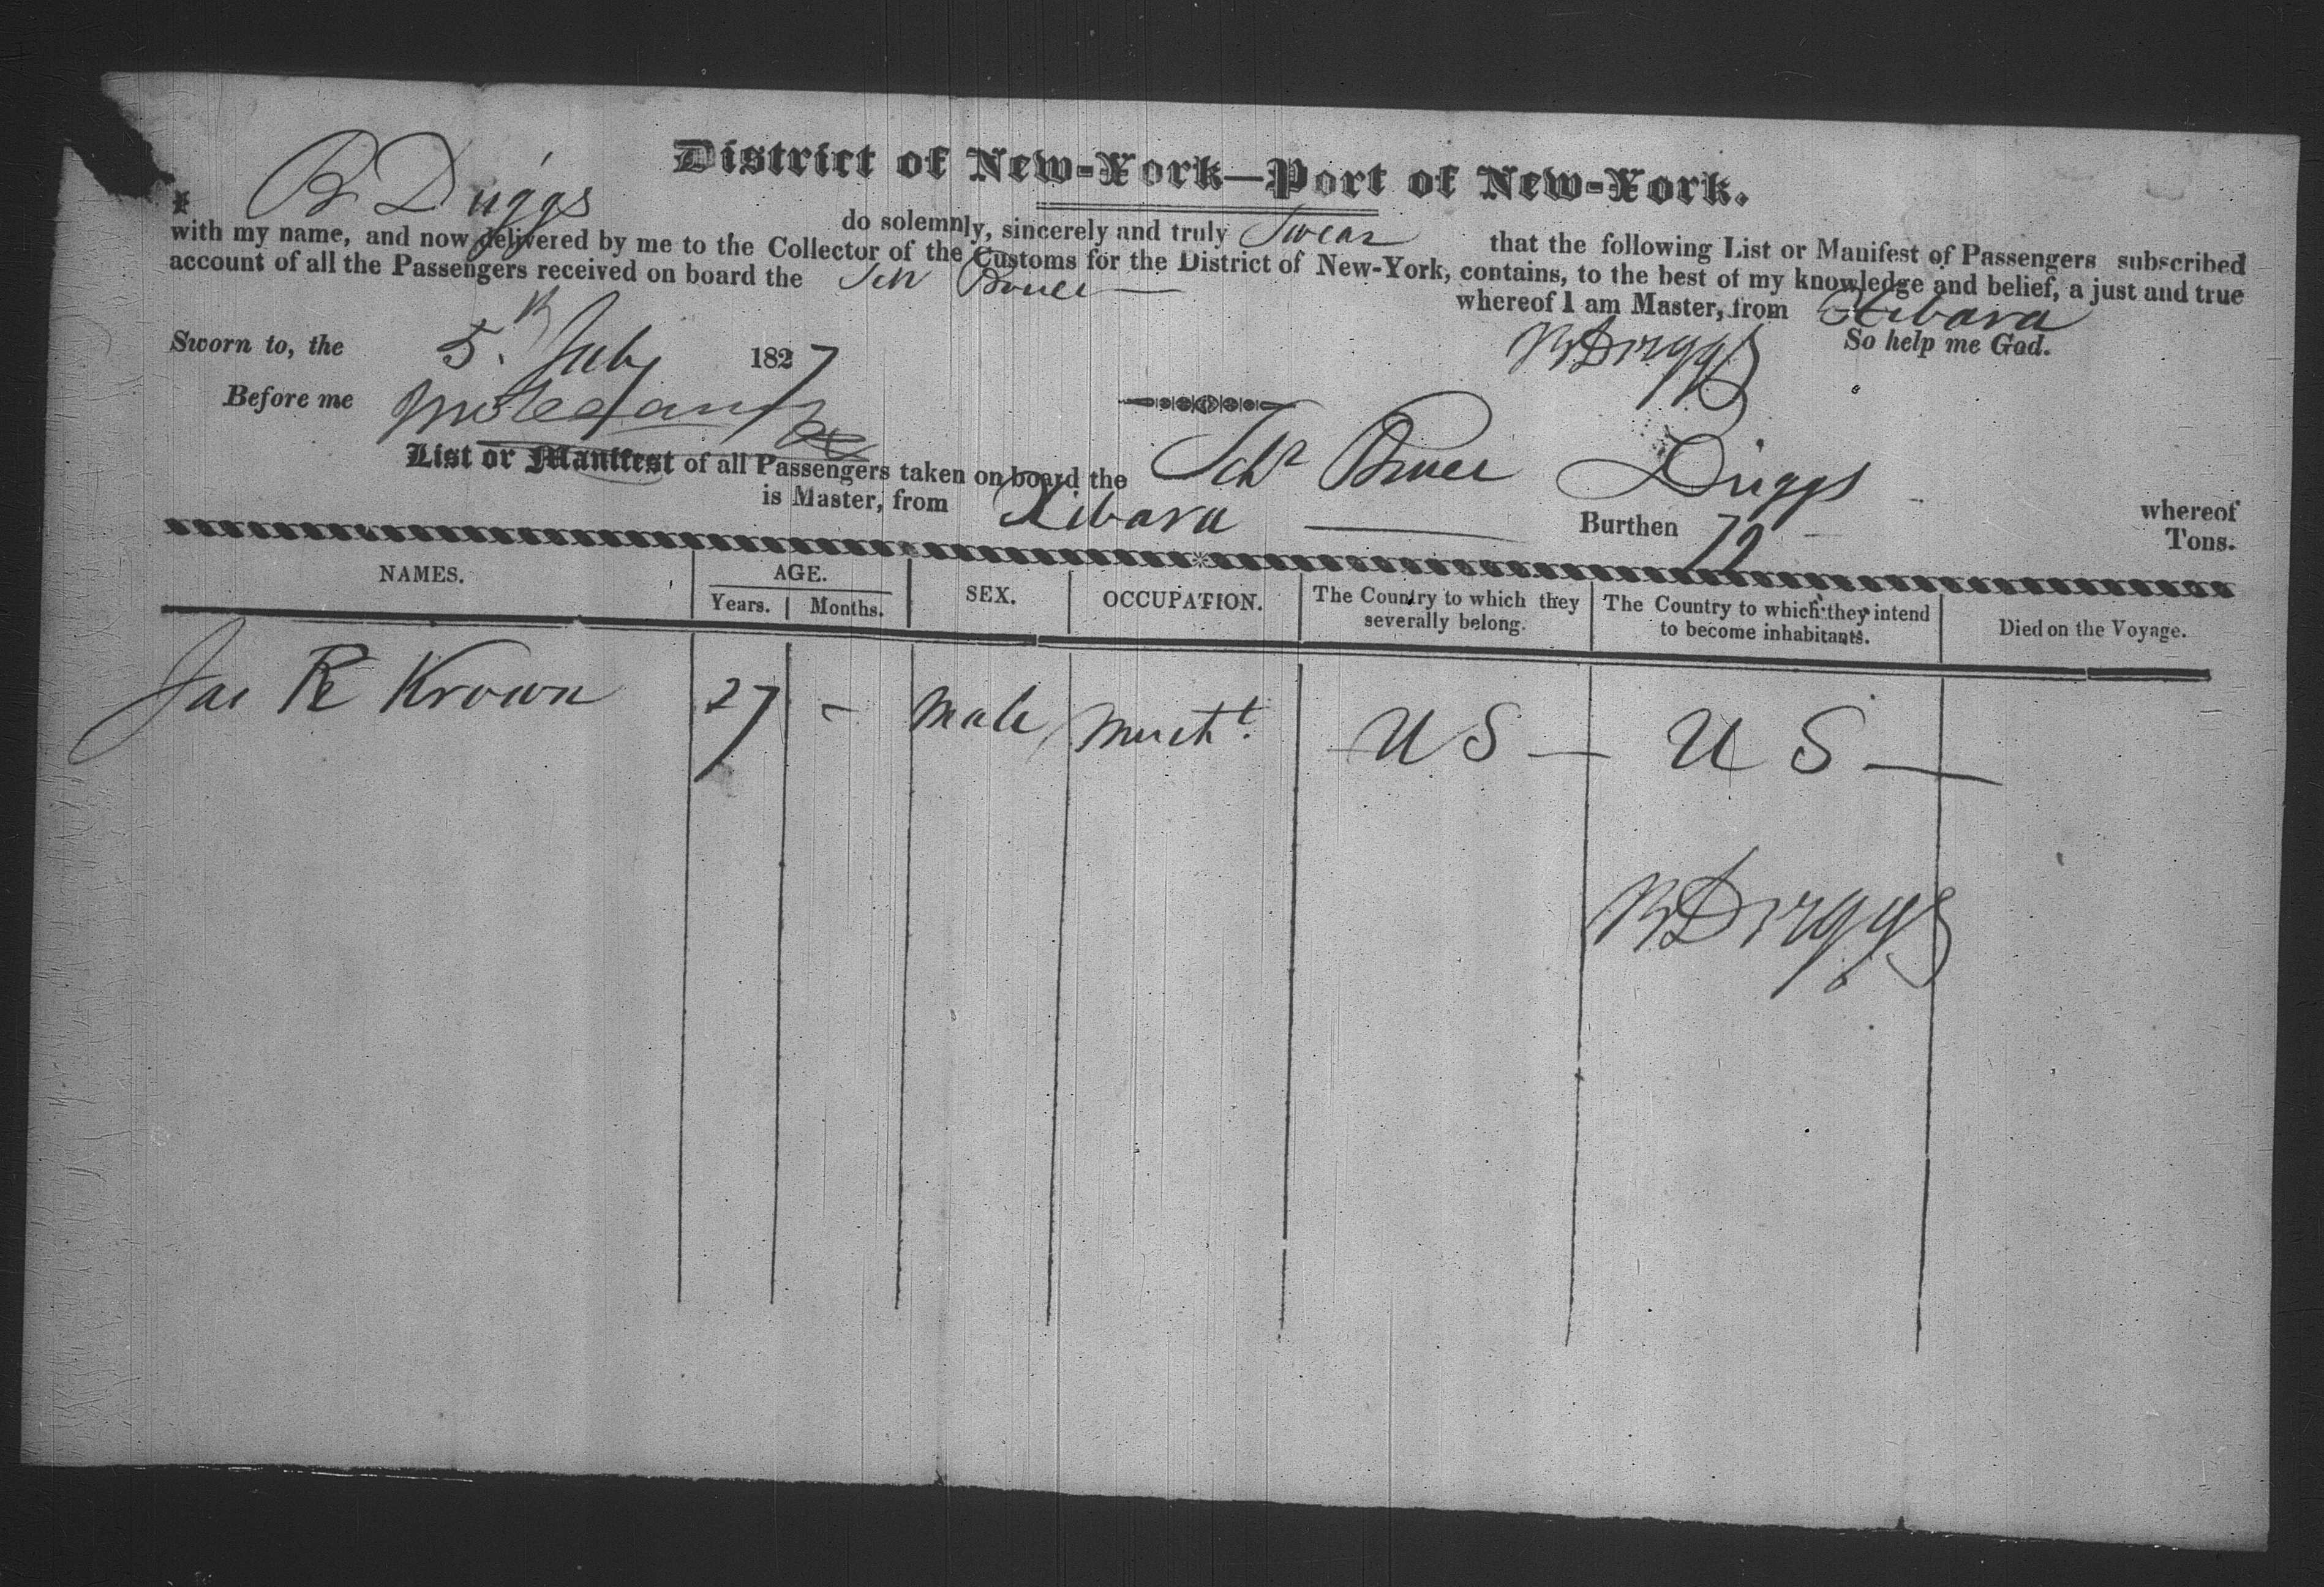 District of New-York—Port of New-York.
I B Duggs do solemnly, sincerely and truly Swear that the following List or Manifest of Passengers subscribed
with my name, and now delivered by me to the Collector of the Customs for the District of New-York, contains, to the best of my knowledge and belief, a just and true
account of all the Passengers received on board the Sch whereof I am Master, from Xibara
Sworn to, the 5th July 1827 So help me God.
B Driggs
Before me
List or Manifest of all Passengers taken on board the Schr Driggs whereof
is Master, from Xibara Burthen 72 Tons.
NAMES. AGE. SEX. OCCUPATION. The Country to which they severally belong. The Country to which they intend to become inhabitants. Died on the Voyage.
Years. Months.
Jas R Krown 27 - Male Mercht. US — US —
B Driggs